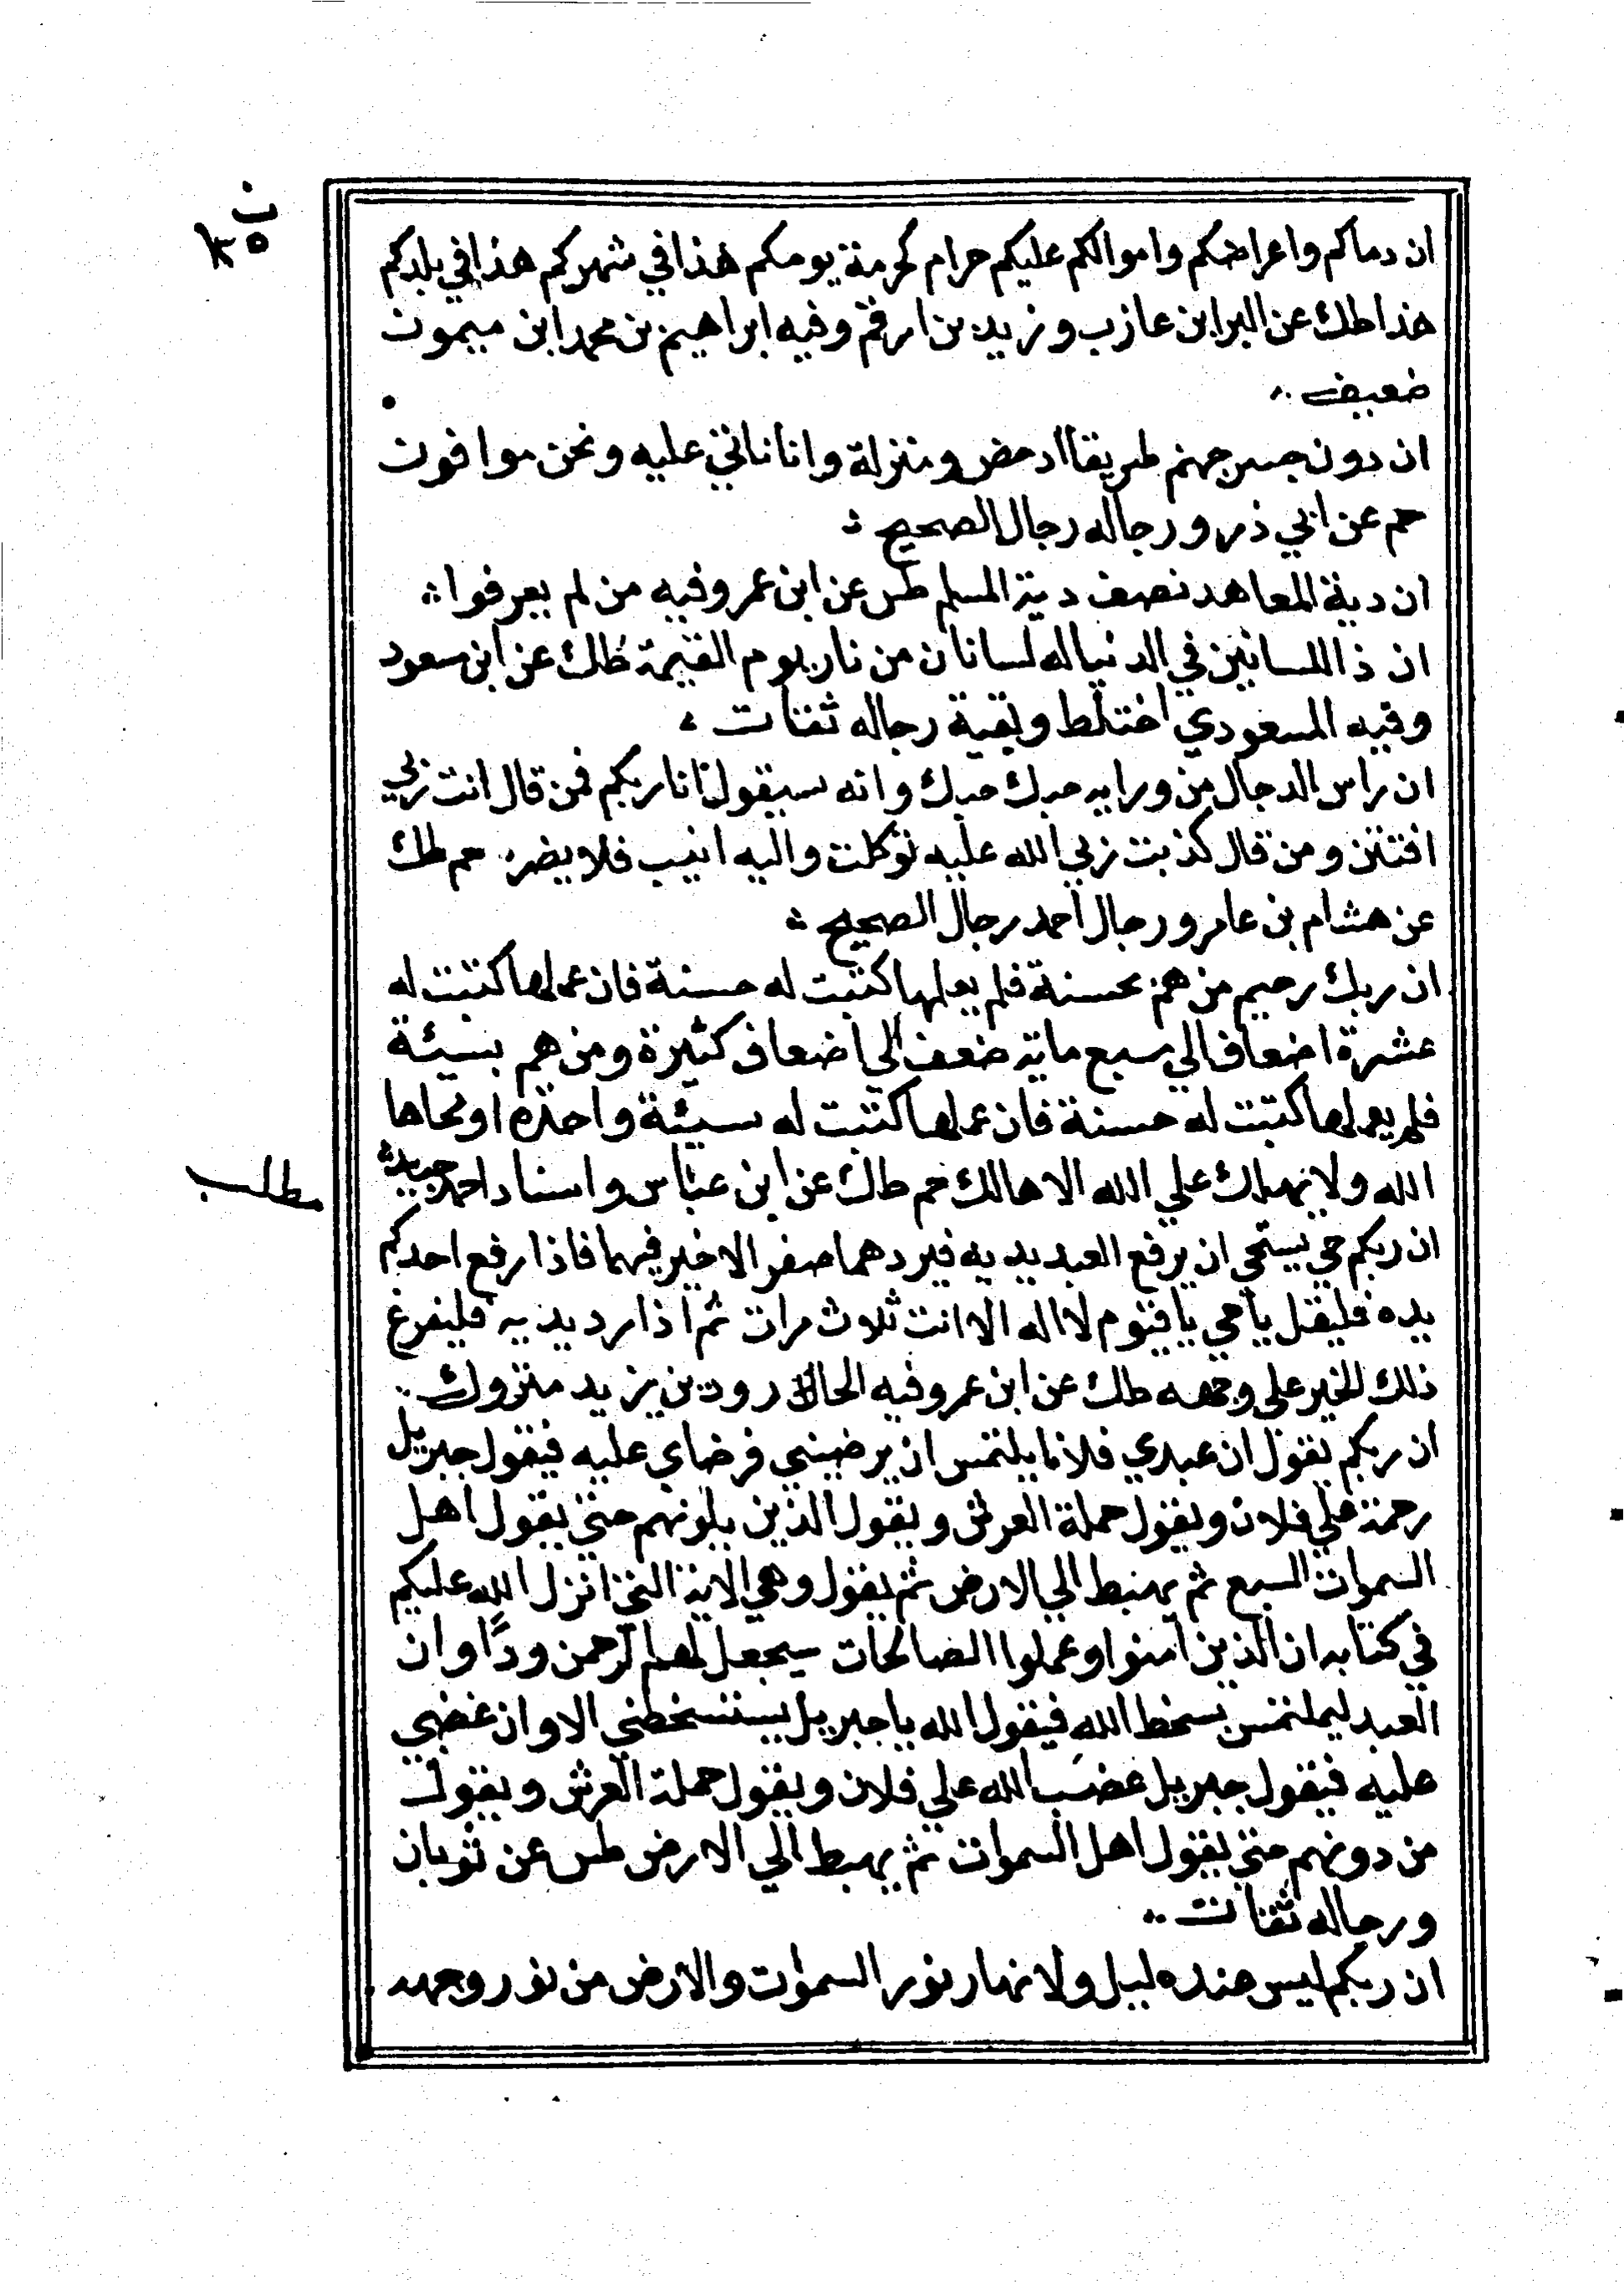 ان دماكم واعراضكم واموالكم عليكم حرام كحرمة يومكم هذا في شهركم هذا في بلدكم
هذا طك عن البرا بن عازب وزيد بن ارقم وفيه ابراهيم بن محمد ابن ميمون
ضعيف
ان دون جسر جهنم طريقا ادحض ومنزلة وانا ناتي عليه ونحن موافون
حم عن ابي ذر ورجاله رجال الصحيح
ان دية المعاهد نصف دية المسلم طس عن ابن عمر وفيه من لم يعرفوا
ان ذا اللسانين في الدنيا له لسانان من نار يوم القيمة طك عن ابن سعود
وفيه المسعودي اختلط وبقية رجاله ثقات
ان راس الدجال من ورايه حبك حبك وانه سيقول انا ربكم فمن قال انت ربي
افتتن ومن قال كذبت ربي الله عليه توكلت واليه انيب فلا يضره حم طك
عن هشام بن عامر ورجال احمد رجال الصحيح
ان ربك رحيم من هم بحسنة فلم يعملها كتبت له حسنة فان عملها كتبت له
عشرة اضعاف الي سبع ماية ضعف الي اضعاف كثيرة ومن هم بسيئة
فلم يعملها كتبت له حسنة فان عملها كتبت له سيئة واحدة او محاها
الله ولا يهلك علي الله الا هالك حم طك عن ابن عباس واسناد احمد جيد
مطلب
ان ربكم حي يستحي ان يرفع العبد يديه فيردهما صفرا لا خير فيهما فاذا رفع احدكم
يده فليقل يا حي يا قيوم لا اله الا انت ثلاث مرات ثم اذا رد يديه فليفرغ
ذلك الخير علي وجهه طك عن ابن عمر وفيه الجارود بن يزيد متروك
ان ربكم يقول ان عبدي فلانا يلتمس ان يرضيني فرضاي عليه فيقول جبريل
رحمة علي فلان ويقول حملة العرش ويقول الذين يلونهم حتي يقول اهل
السموات السبع ثم يهبط الي الارض ثم يقول وهي الاية التي انزل الله عليكم
في كتابه ان الذين امنوا وعملوا الصالحات سيجعل لهم الرحمن ودًا وان
العبد ليلتمس بسخط الله فيقول الله يا جبريل يستسخطني الا وان غضبي
عليه فيقول جبريل غضب الله علي فلان ويقول حملة العرش ويقول
من دونهم حتي يقول اهل السموات ثم يهبط الي الارض طس عن ثوبان
ورجاله ثقات
ان ربكم ليس عنده ليل ولا نهار نور السموات والارض من نور وجهه